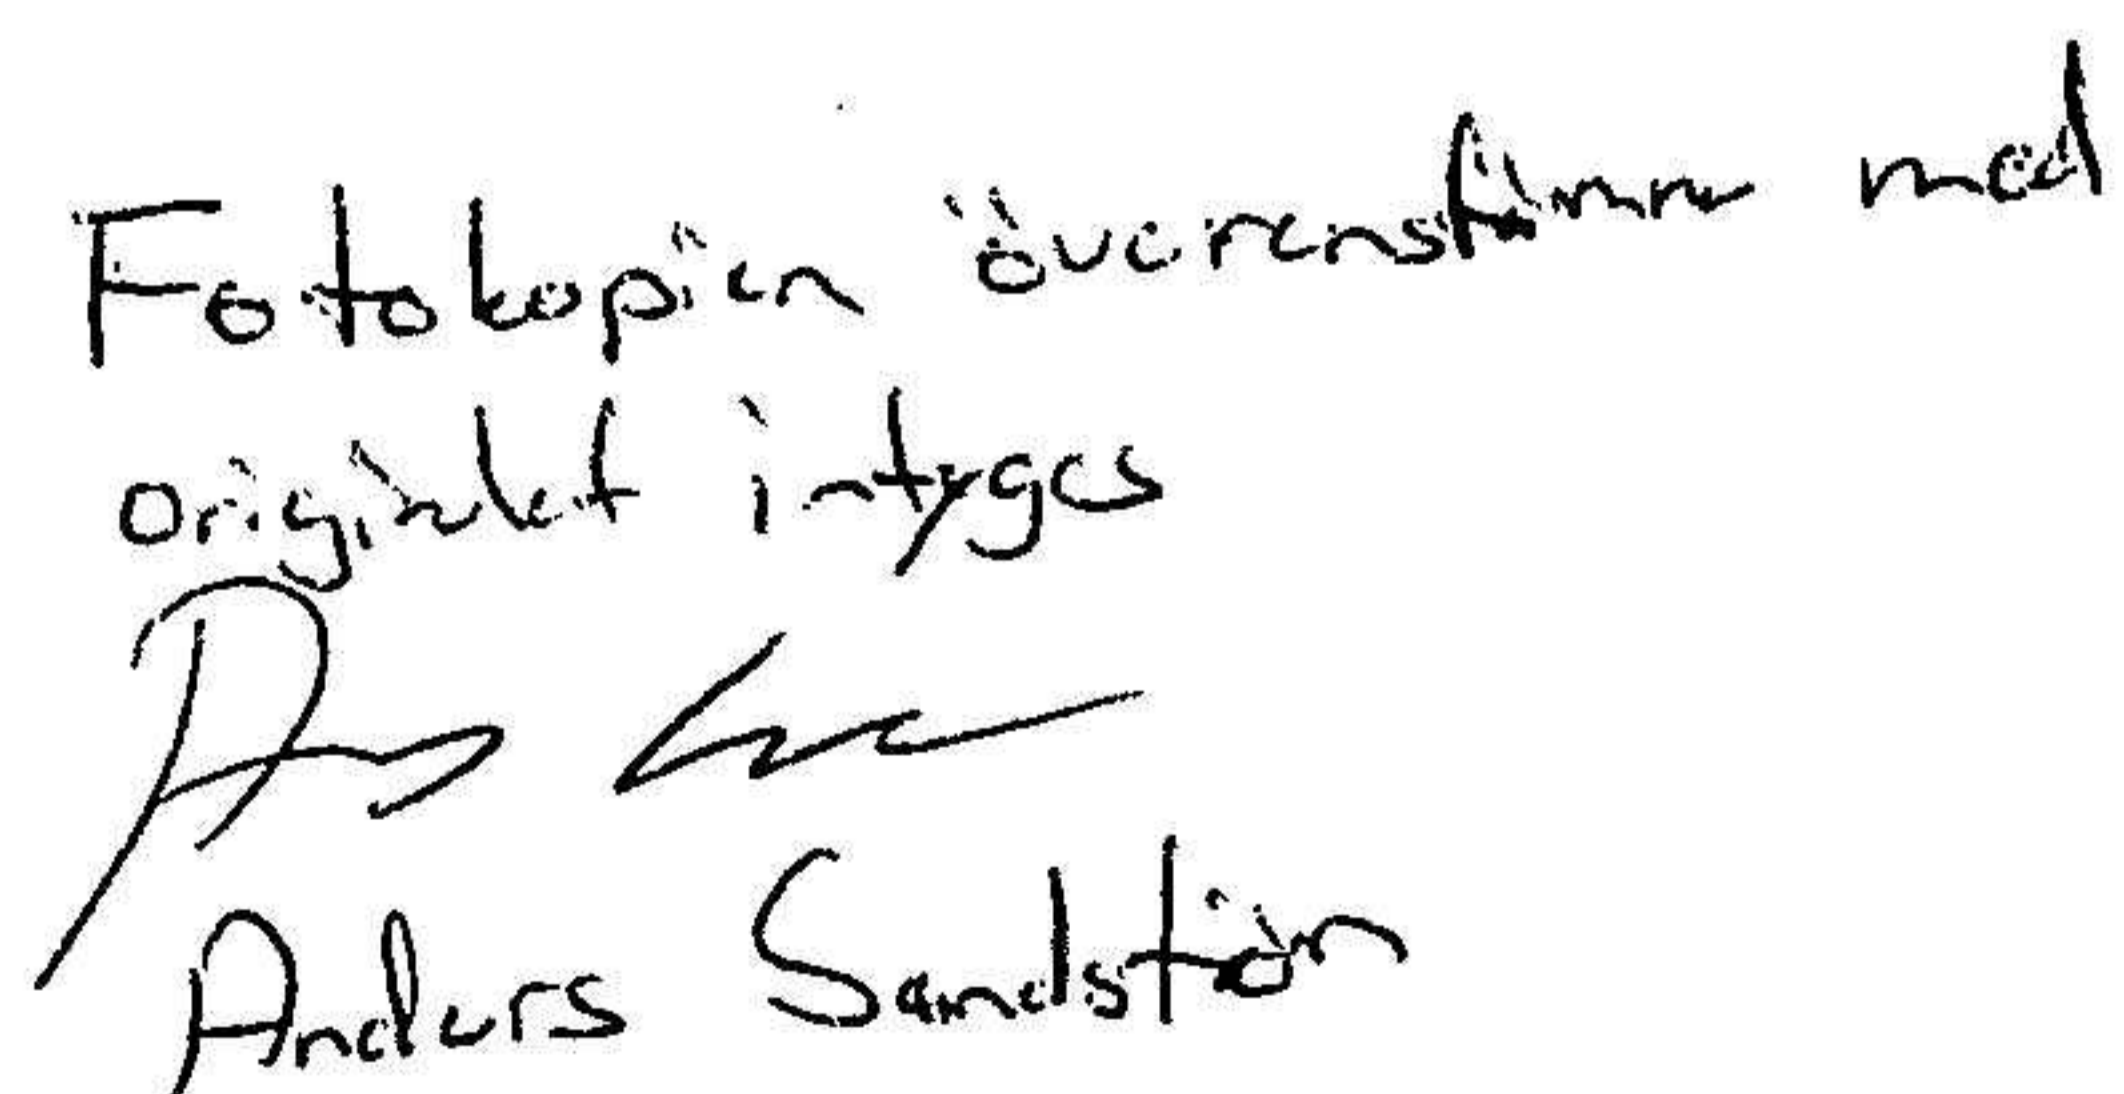 Fotokopien överenstämmer med
originalet intyges
Anders Sandström